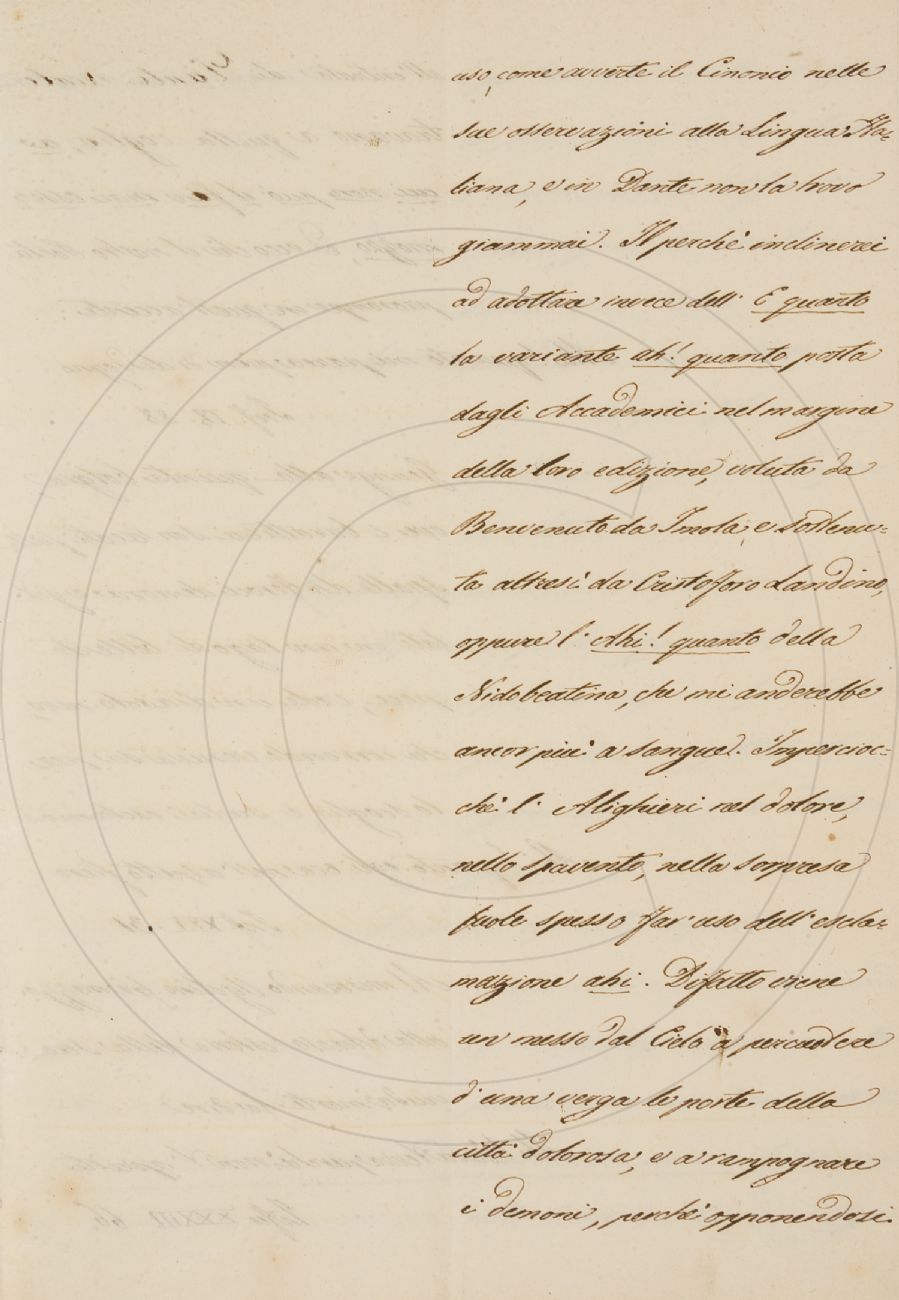 uso, come avverte il Cinonio nelle
sue osservazioni alla Lingua Ita-
liana, e in Dante non la trovo
giammai. Il perchè inclinerei
ad adottare invece dell' E quanto
la variante ah! quanto posta
dagli Accademici nel margine
della loro edizione, voluta da
Benvenuto da Imola, e sostenu-
ta altresì da Cristoforo Landino,
oppure l' Ahi! quanto della
Nidobeatina, che mi anderebbe
ancor più a sangue. Impercioc-
chè l' Alighieri nel dolore,
nello spavento, nella sorpresa
suole spesso far uso dell' escla-
mazione ahi. Difatto viene
un messo dal Cielo a percuotere
d' una verga le porte della
città dolorosa, e a rampognare
i demoni, perchè opponendosi